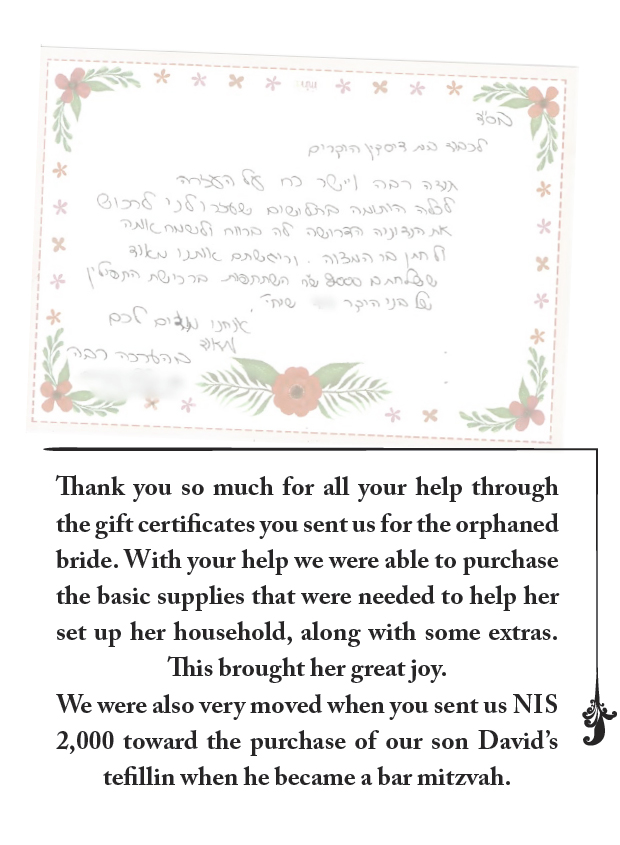 בס"ד
לכבוד בית דיסקין היקרים
תודה רבה ויישר כח על העזרה
לכלה היתומה בתלושים שעזרו לנו לרכוש
את הנדוניה הדרושה לה ברווח ולשמח אותה
לחתן בר המצוה. ריגשתם אותנו מאוד
ששלחתם 2000 ש"ח השתתפות ברכישת התפילין
של בני היקר שיחי'
אנחנו מודים לכם
מאוד
בהערכה רבה
Thank you so much for all your help through
the gift certificates you sent us for the orphaned
bride. With your help we were able to purchase
the basic supplies that were needed to help her
set up her household, along with some extras.
This brought her great joy.
We were also very moved when you sent us NIS
2,000 toward the purchase of our son David's
tefillin when he became a bar mitzvah.